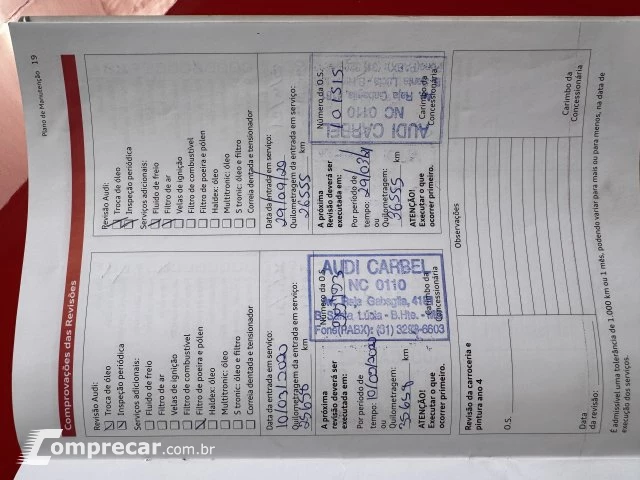 Plano de Manutenção 19
Comprovações das Revisões
Revisão Audi:
Troca de óleo
Inspeção periódica
Serviços adicionais:
Fluido de freio
Filtro de ar
Velas de ignição
Filtro de combustível
Filtro de poeira e pólen
Haldex: óleo
Multitronic: óleo
S tronic: óleo e filtro
Correia dentada e tensionador
Data da entrada em serviço:
10/03/2020
Quilometragem da entrada em serviço:
km
A próxima
Revisão deverá ser
executada em:
Número da O.S.
Por período de
tempo: 10/09/2020
ou
Quilometragem:
35658 km
ATENÇÃO!
Executar o que
ocorrer primeiro.
AUDI CARBEL
NC 0110
Raja Gabaglia,
Lúcia - B.Hte. -
Fone(PABX): (31)
Carimbo da
Concessionária
Revisão Audi:
Troca de óleo
Inspeção periódica
Serviços adicionais:
Fluido de freio
Filtro de ar
Velas de ignição
Filtro de combustível
Filtro de poeira e pólen
Haldex: óleo
Multitronic: óleo
S tronic: óleo e filtro
Correia dentada e tensionador
Data da entrada em serviço:
Quilometragem da entrada em serviço:
26555 km
A próxima
Revisão deverá ser
executada em:
Número da O.S.
101515
Por período de
tempo:
ou
Quilometragem:
36555 km
ATENÇÃO!
Executar o que
ocorrer primeiro.
AUDI CARBEL
NC 0110
Raja Gabaglia
Carimbo da
Concessionária
Revisão da carroceria e
pintura ano 4
O.S.
Data
da revisão:
Observações
Carimbo da
Concessionária
É admissível uma tolerância de 1.000 km ou 1 mês, podendo variar para mais ou para menos, na data de
execução dos serviços.
Comprecar.com.br